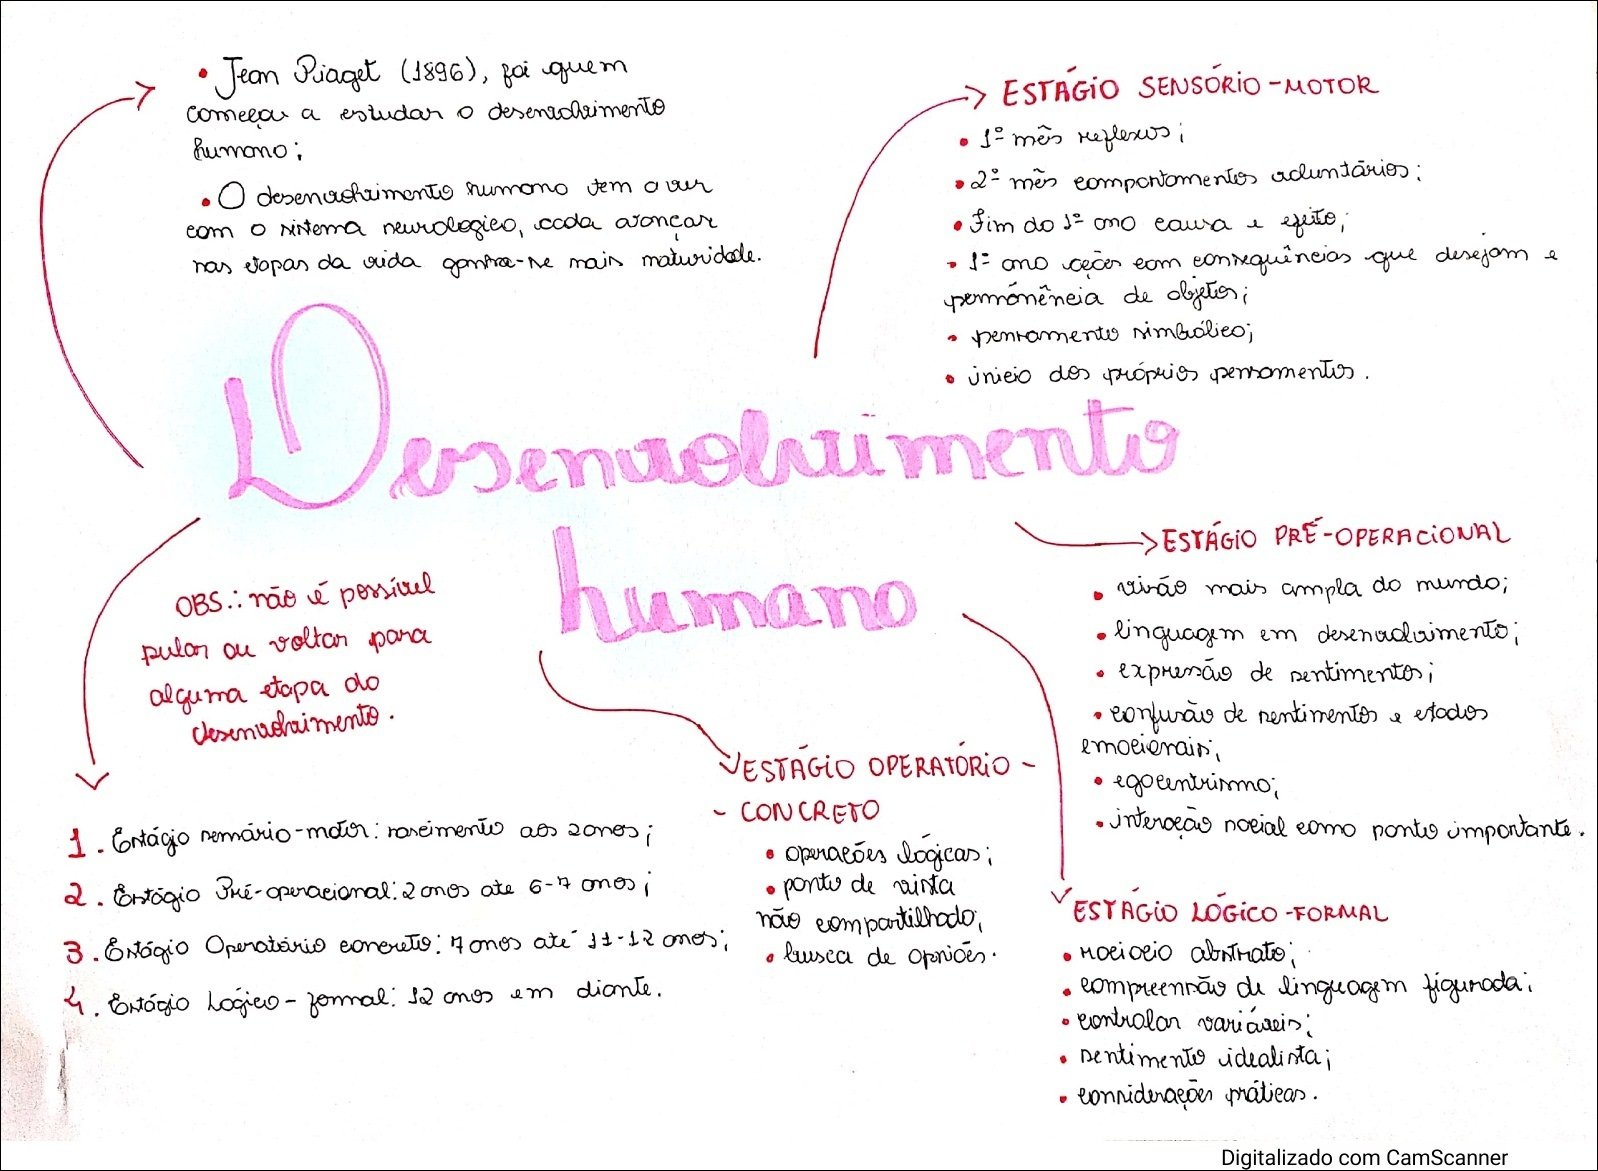 • Jean Piaget (1896), foi quem
começou a estudar o desenvolvimento
humano;
• O desenvolvimento humano tem a ver
com o sistema neurologico, cada avançar
nas etapas da vida ganha-se mais maturidade.
ESTÁGIO SENSÓRIO-MOTOR
• 1º mês reflexos;
• 2º mês comportamentos voluntários;
• Fim do 1º ano causa e efeito;
• 1º ano ações com consequências que desejam e
permanência de objetos;
• pensamento simbólico;
• inicio dos próprios pensamentos.
Desenvolvimento
humano
ESTÁGIO PRÉ-OPERACIONAL
• visão mais ampla do mundo;
• linguagem em desenvolvimento;
• expressão de sentimentos;
• confusão de sentimentos e etados
emocionais;
• egocentrismo;
• interação social como ponto importante.
OBS.: não é possível
pular ou voltar para
alguma etapa do
desenvolvimento.
1. Estágio sensário-motor: nascimento aos 2 anos;
2. Estágio Pré-operacional: 2 anos ate 6-7 anos;
3. Estágio Operatório concreto: 7 anos até 11-12 anos;
4. Estágio Lógico-formal: 12 anos em diante.
ESTÁGIO OPERATÓRIO -
- CONCRETO
• operações lógicas;
• ponto de vista
não compartilhado;
• busca de opniões.
ESTÁGIO LÓGICO-FORMAL
• raciocio abstrato;
• compreensão de linguagem figurada;
• controlar variáveis;
• sentimento idealista;
• considerações práticas.
Digitalizado com CamScanner